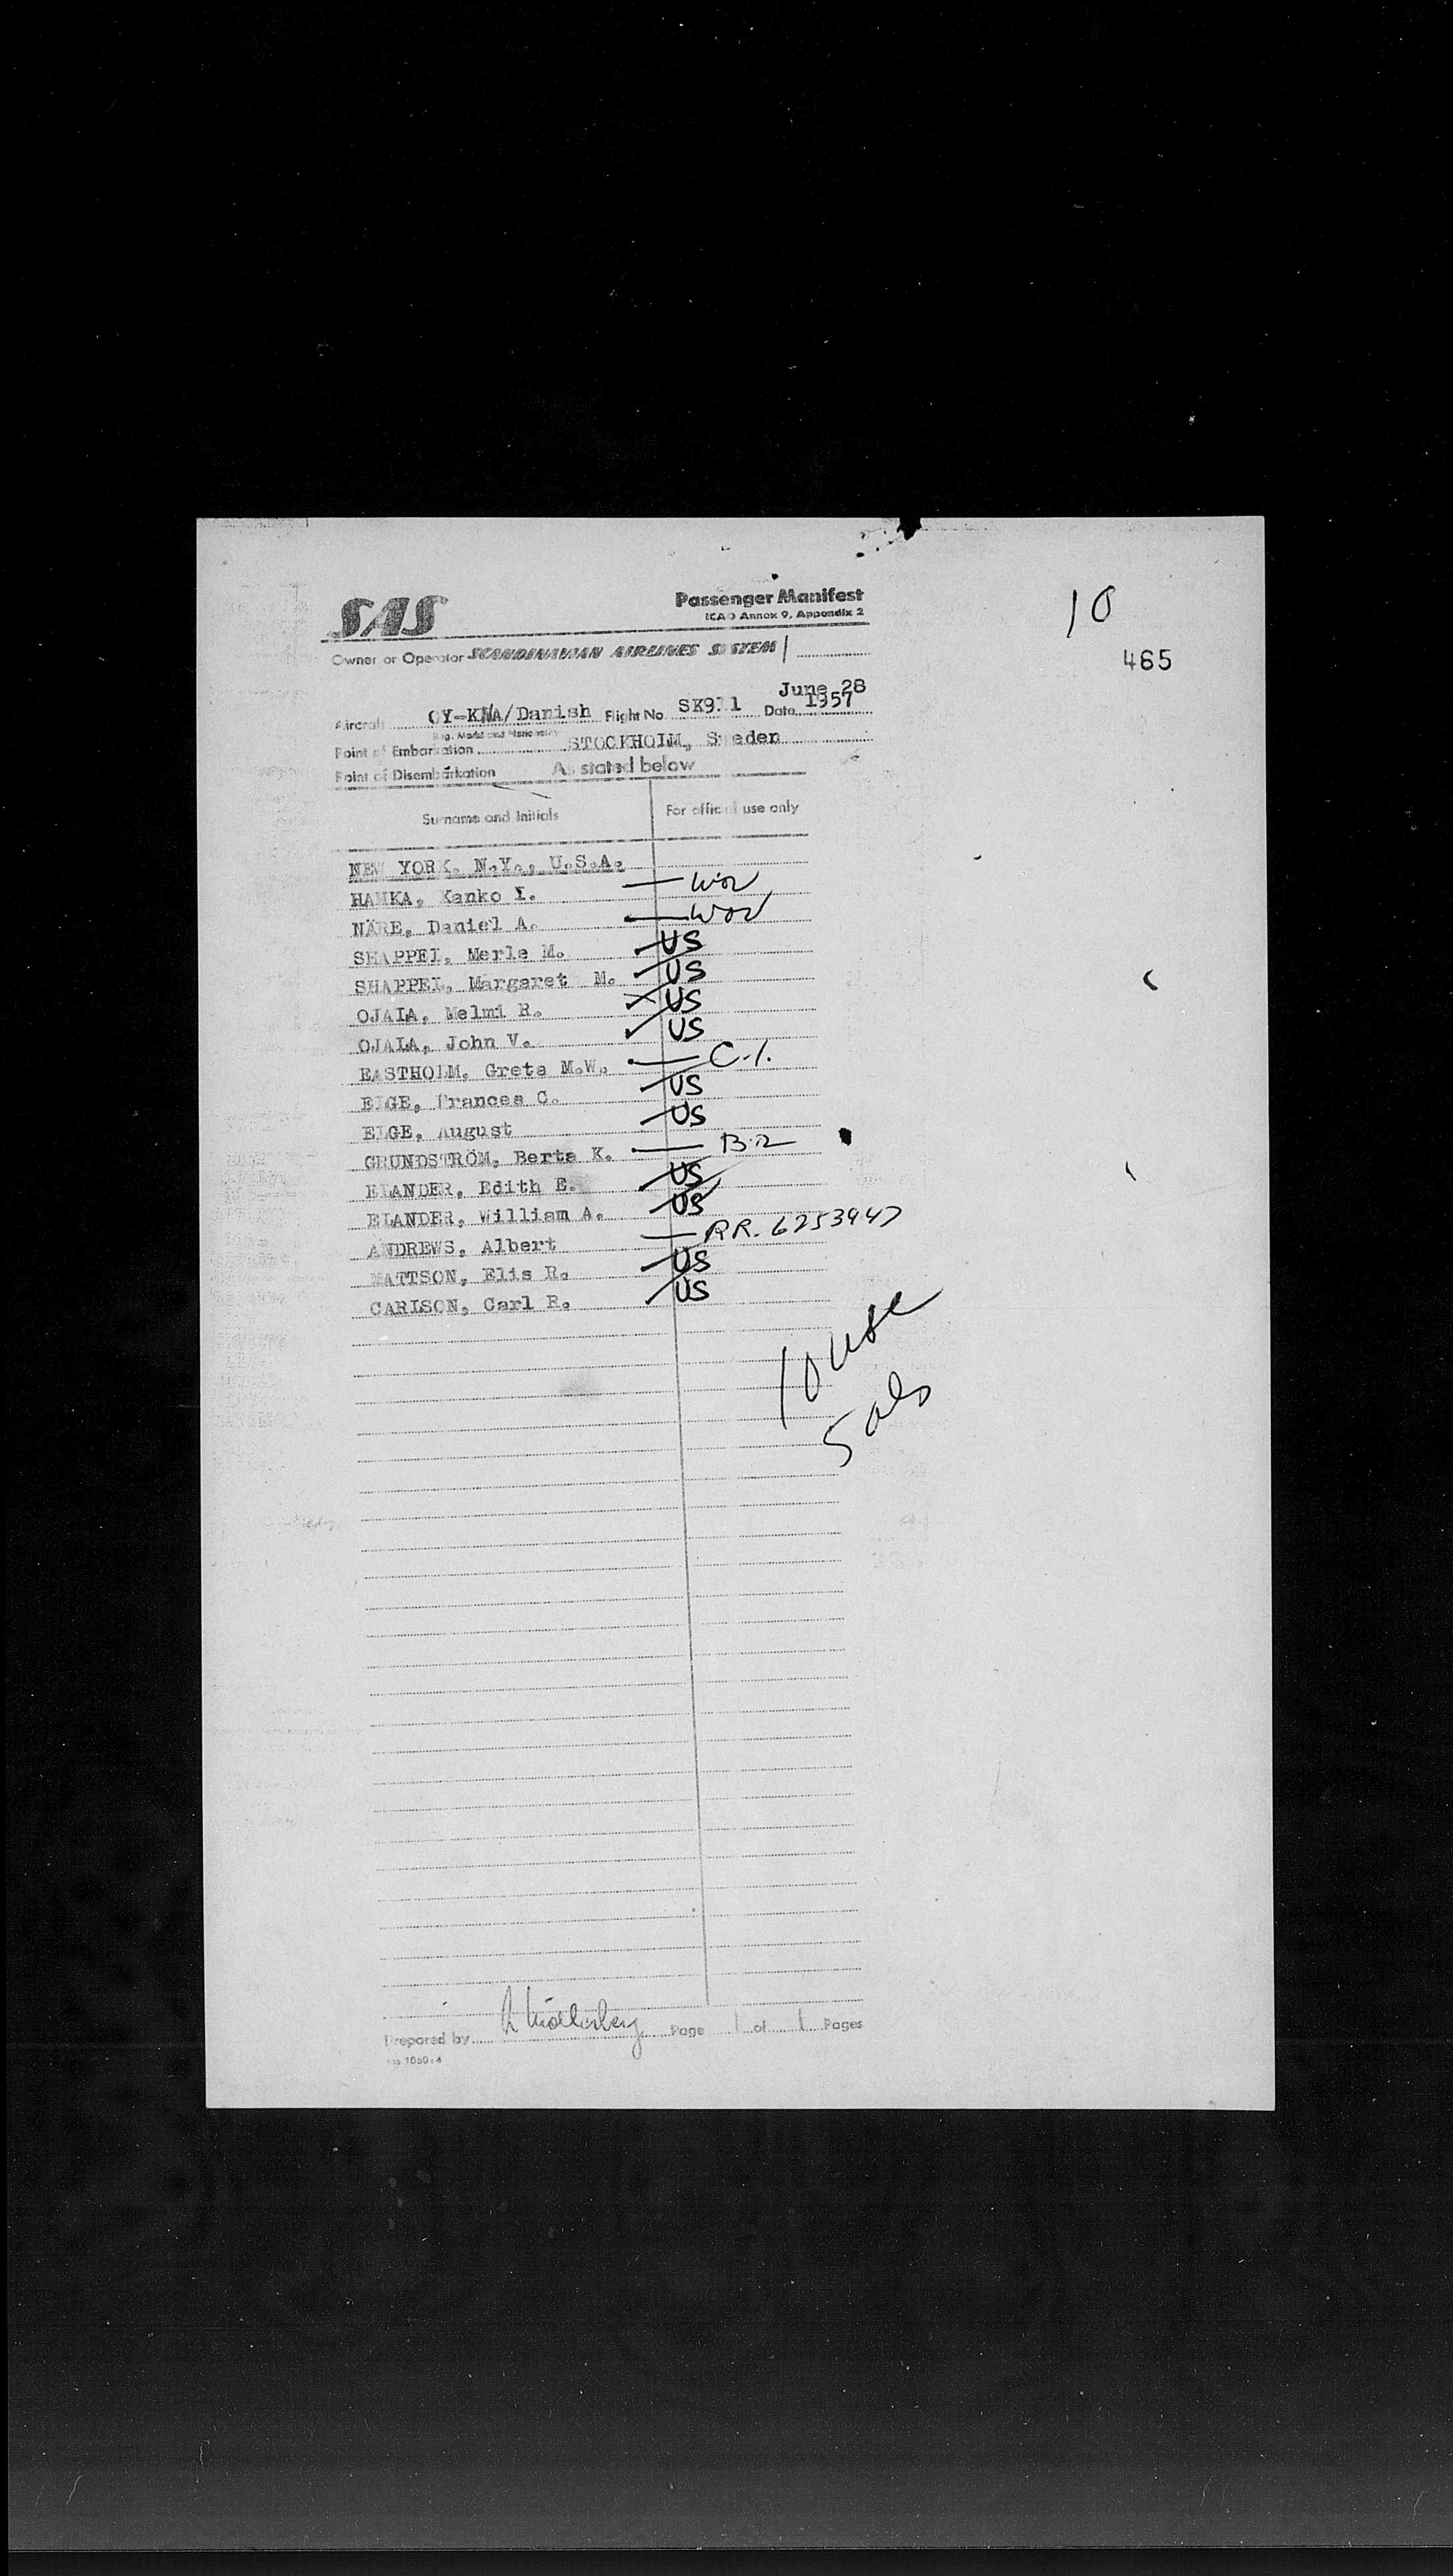 10
465
SAS
Passenger Manifest
ICAO Annex 9, Appendix 2
Owner or Operator SCANDINAVIAN AIRLINES SYSTEM
June 28
1957
Aircraft OY-KNA/Danish Flight No. SK911 Date
Reg. Marks and Nationality
Point of Embarkation STOCKHOLM, Sweden
Point of Disembarkation As stated below
Surname and Initials For official use only
NEW YORK, N.Y., U.S.A.
Kanko I.
NÄRE, Daniel A.
SHAPPEL, Merle M. US
SHAPPEL, Margaret M. US
OJALA, Helmi R. US
OJALA, John V. US
EASTHOLM, Greta M.W. C-1.
Frances C. US
August US
GRUNDSTRÖM, Berta K. B-2
ELANDER, Edith E. US
ELANDER, William A. US
ANDREWS, Albert RR. 6253947
MATTSON, Elis R. US
CARLSON, Carl R. US
10 usc
5 als
Prepared by Page 1 of 1 Pages